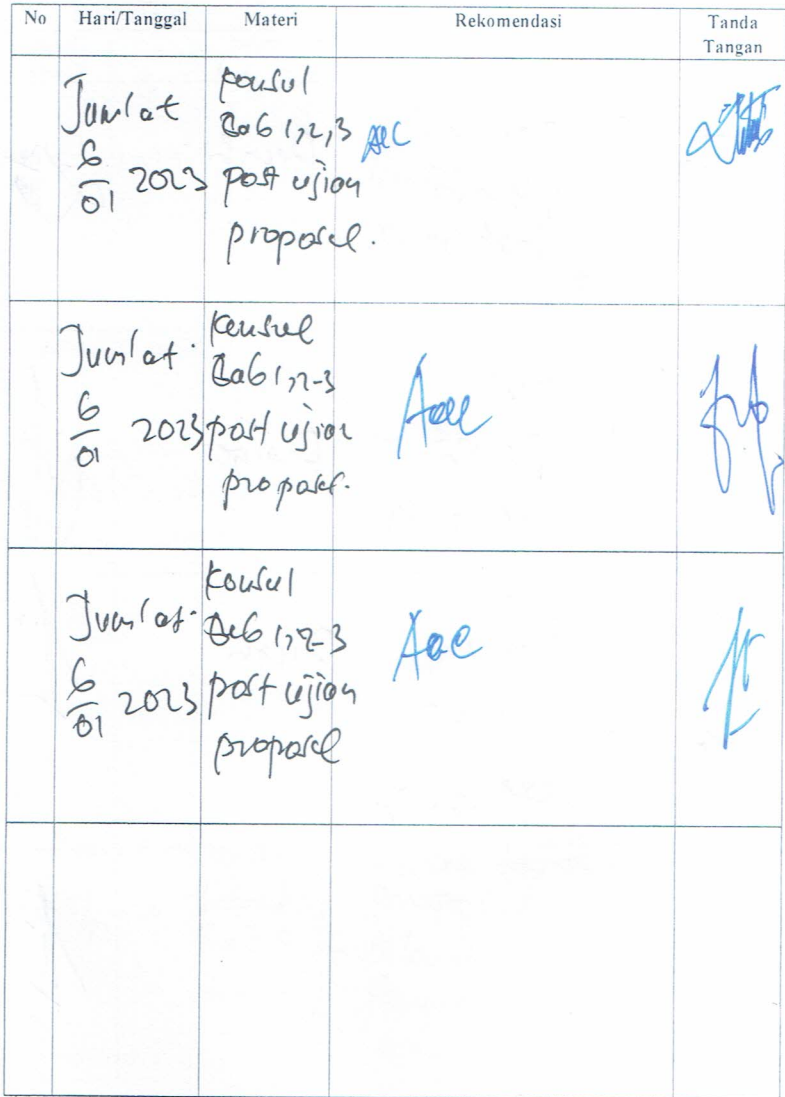 No Hari/Tanggal Materi Rekomendasi Tanda Tangan
Jum'at
6/01 2023
Konsul
Bab 1,2,3
post ujian
proposal.
Acc
Jum'at.
6/01 2023
Konsul
Bab 1,2-3
post ujian
proposal.
Acc
Jum'at.
6/01 2023
Konsul
Bab 1,2-3
post ujian
proposal
Acc